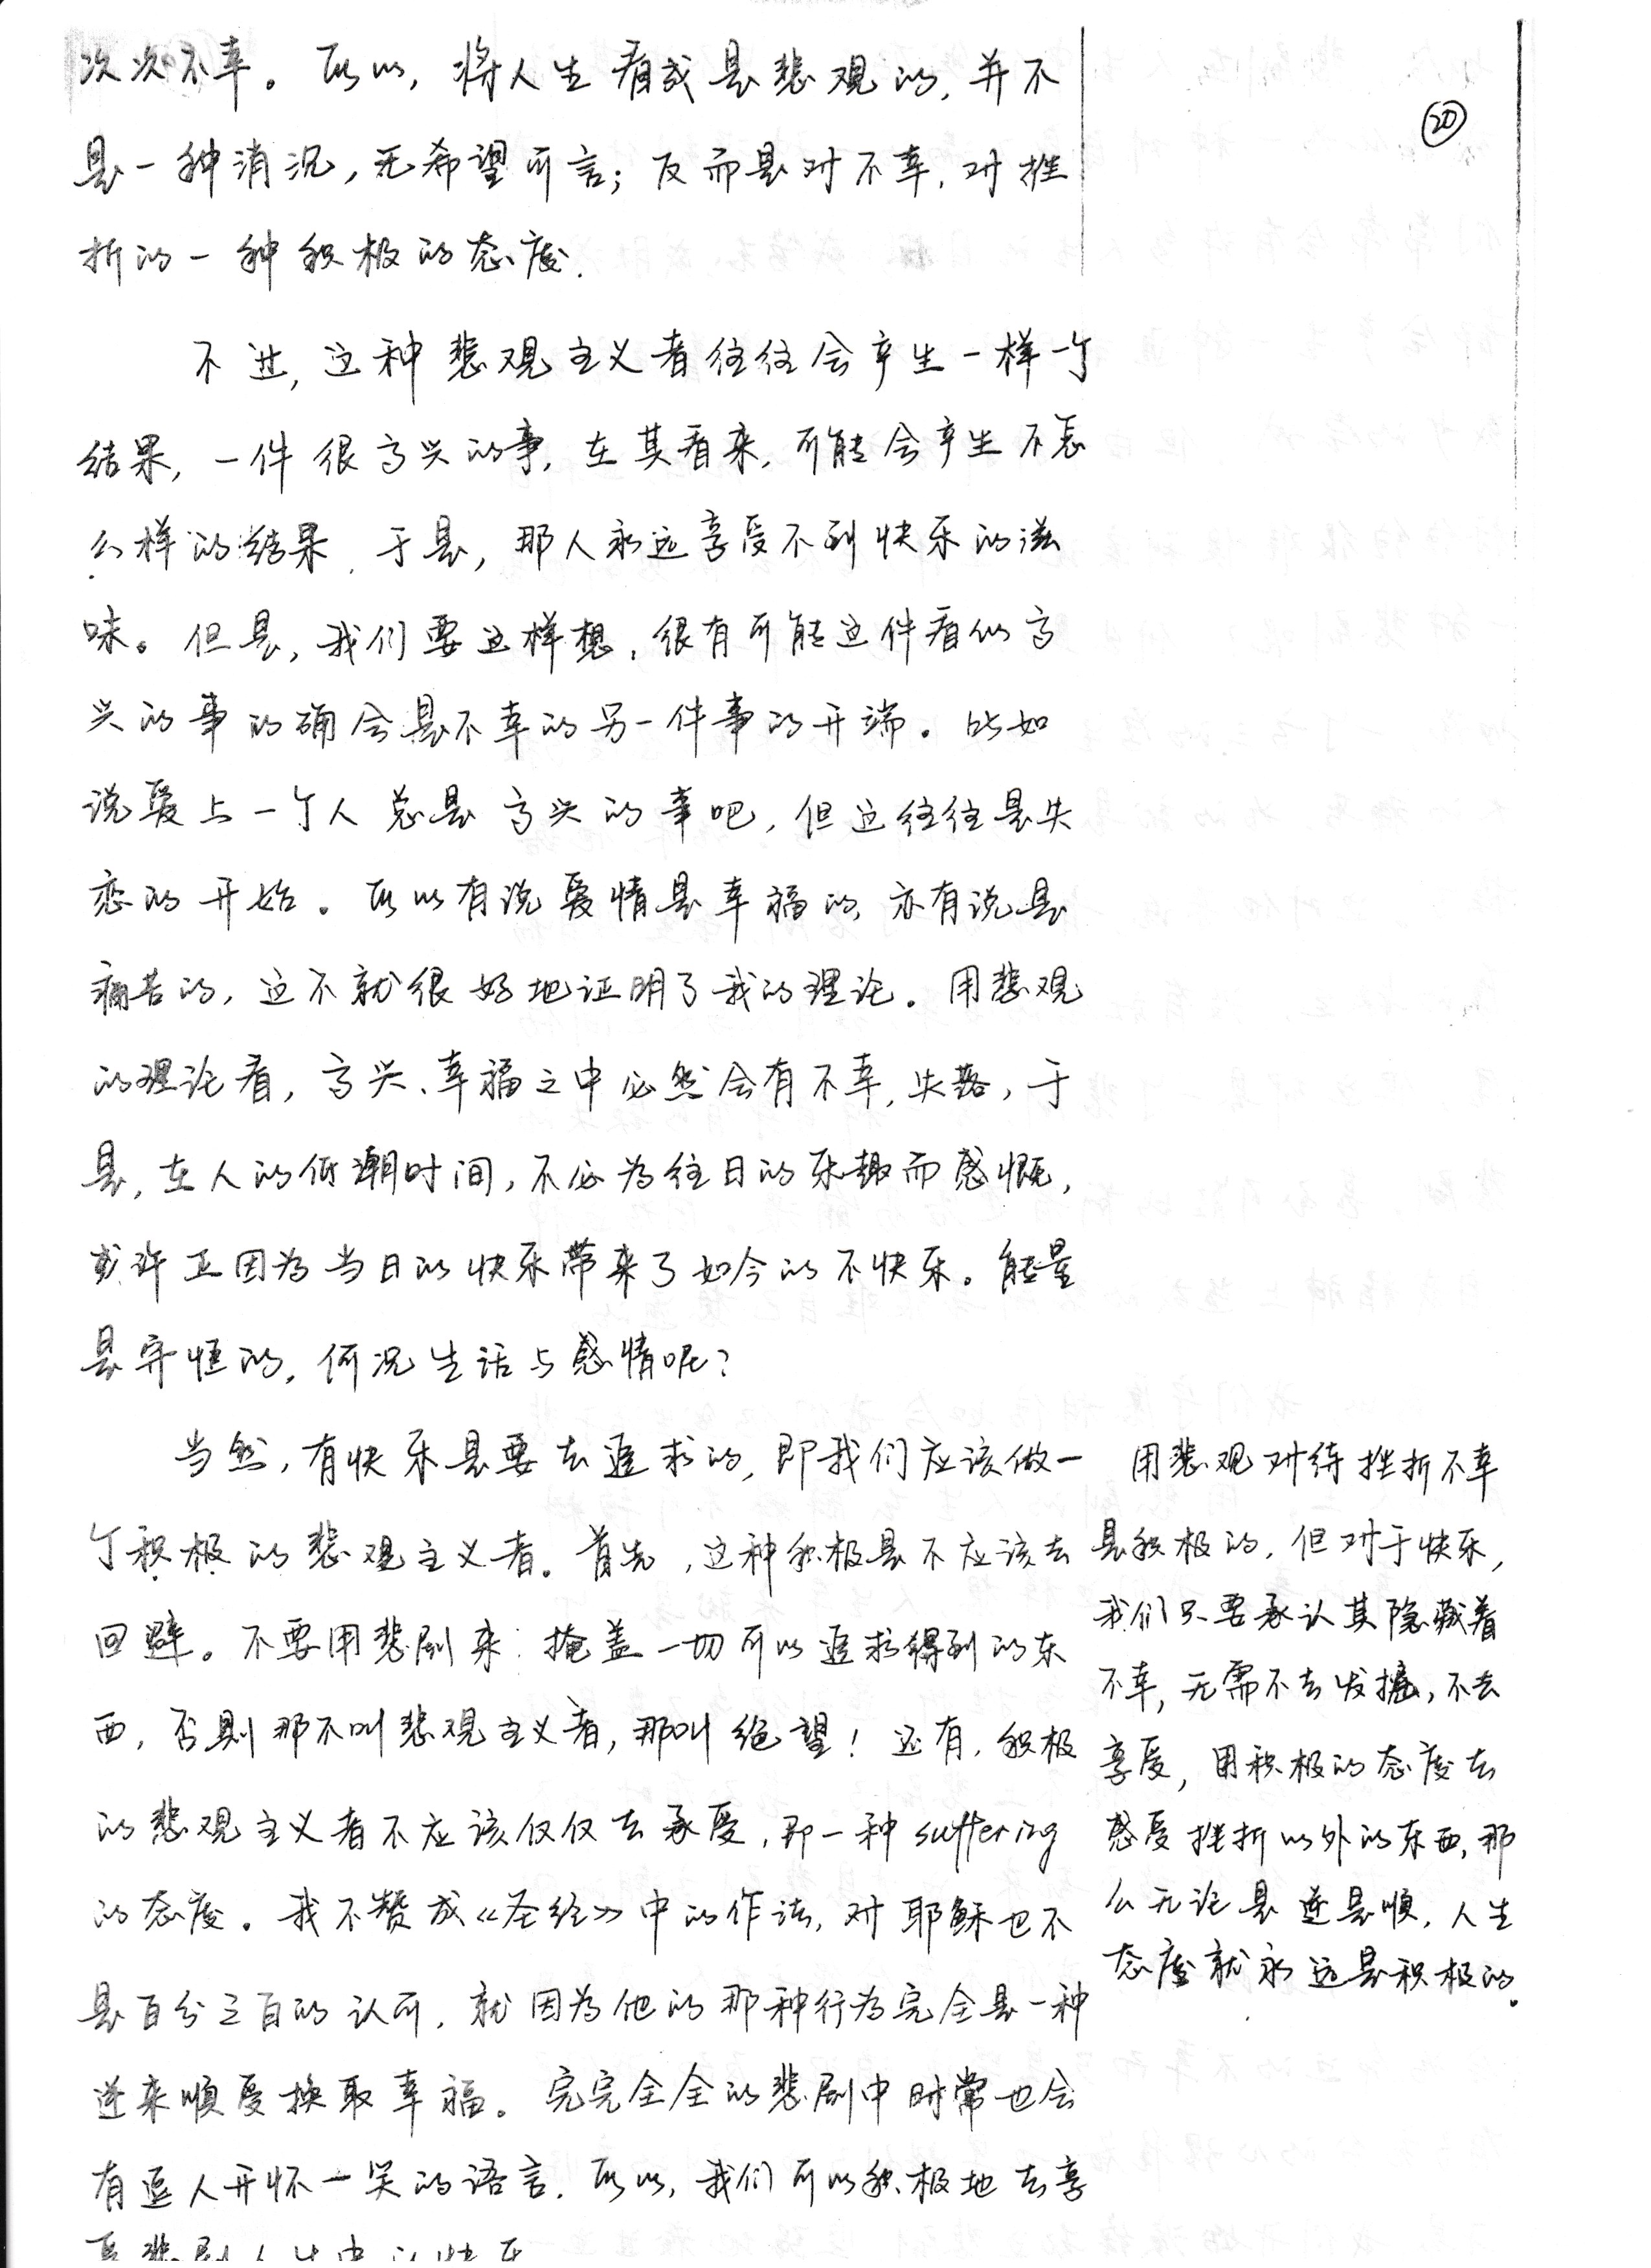 次次不幸。所以，将人生看成是悲观的，并不
是一种消沉，无希望可言；反而是对不幸，对挫
折的一种积极的态度.
不过，这种悲观主义者往往会产生一样一个
结果，一件很高兴的事，在其看来，可能会产生不怎
么样的结果，于是，那人永远享受不到快乐的滋
味。但是，我们要这样想，很有可能这件看似高
兴的事的确会是不幸的另一件事的开端。比如
说爱上一个人总是高兴的事吧，但这往往是失
恋的开始。所以有说爱情是幸福的，亦有说是
痛苦的，这不就很好地证明了我的理论。用悲观
的理论看，高兴、幸福之中必然会有不幸，失落，于
是，在人的低潮时间，不必为往日的乐趣而感慨，
或许正因为当日的快乐带来了如今的不快乐。能量
是守恒的，何况生活与感情呢？
当然，有快乐是要去追求的，即我们应该做一
个积极的悲观主义者。首先，这种积极是不应该去
回避。不要用悲剧来掩盖一切可以追求得到的东
西，否则那不叫悲观主义者，那叫绝望！还有，积极
的悲观主义者不应该仅仅去承受，那一种suffering
的态度。我不赞成《圣经》中的作法，对耶稣也不
是百分之百的认可，就因为他的那种行为完全是一种
逆来顺受换取幸福。完完全全的悲剧中时常也会
有逗人开怀一笑的语言. 所以，我们可以积极地去享
受悲剧人生中的快乐
⑳
用悲观对待挫折不幸
是积极的，但对于快乐，
我们只要承认其隐藏着
不幸，无需不去发掘，不去
享受，用积极的态度去
感受挫折以外的东西，那
么无论是逆是顺，人生
态度就永远是积极的.